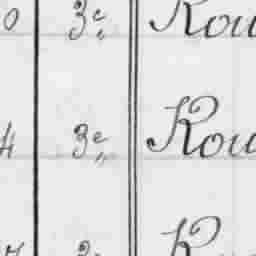 0 3e Kou
4 3e Kou